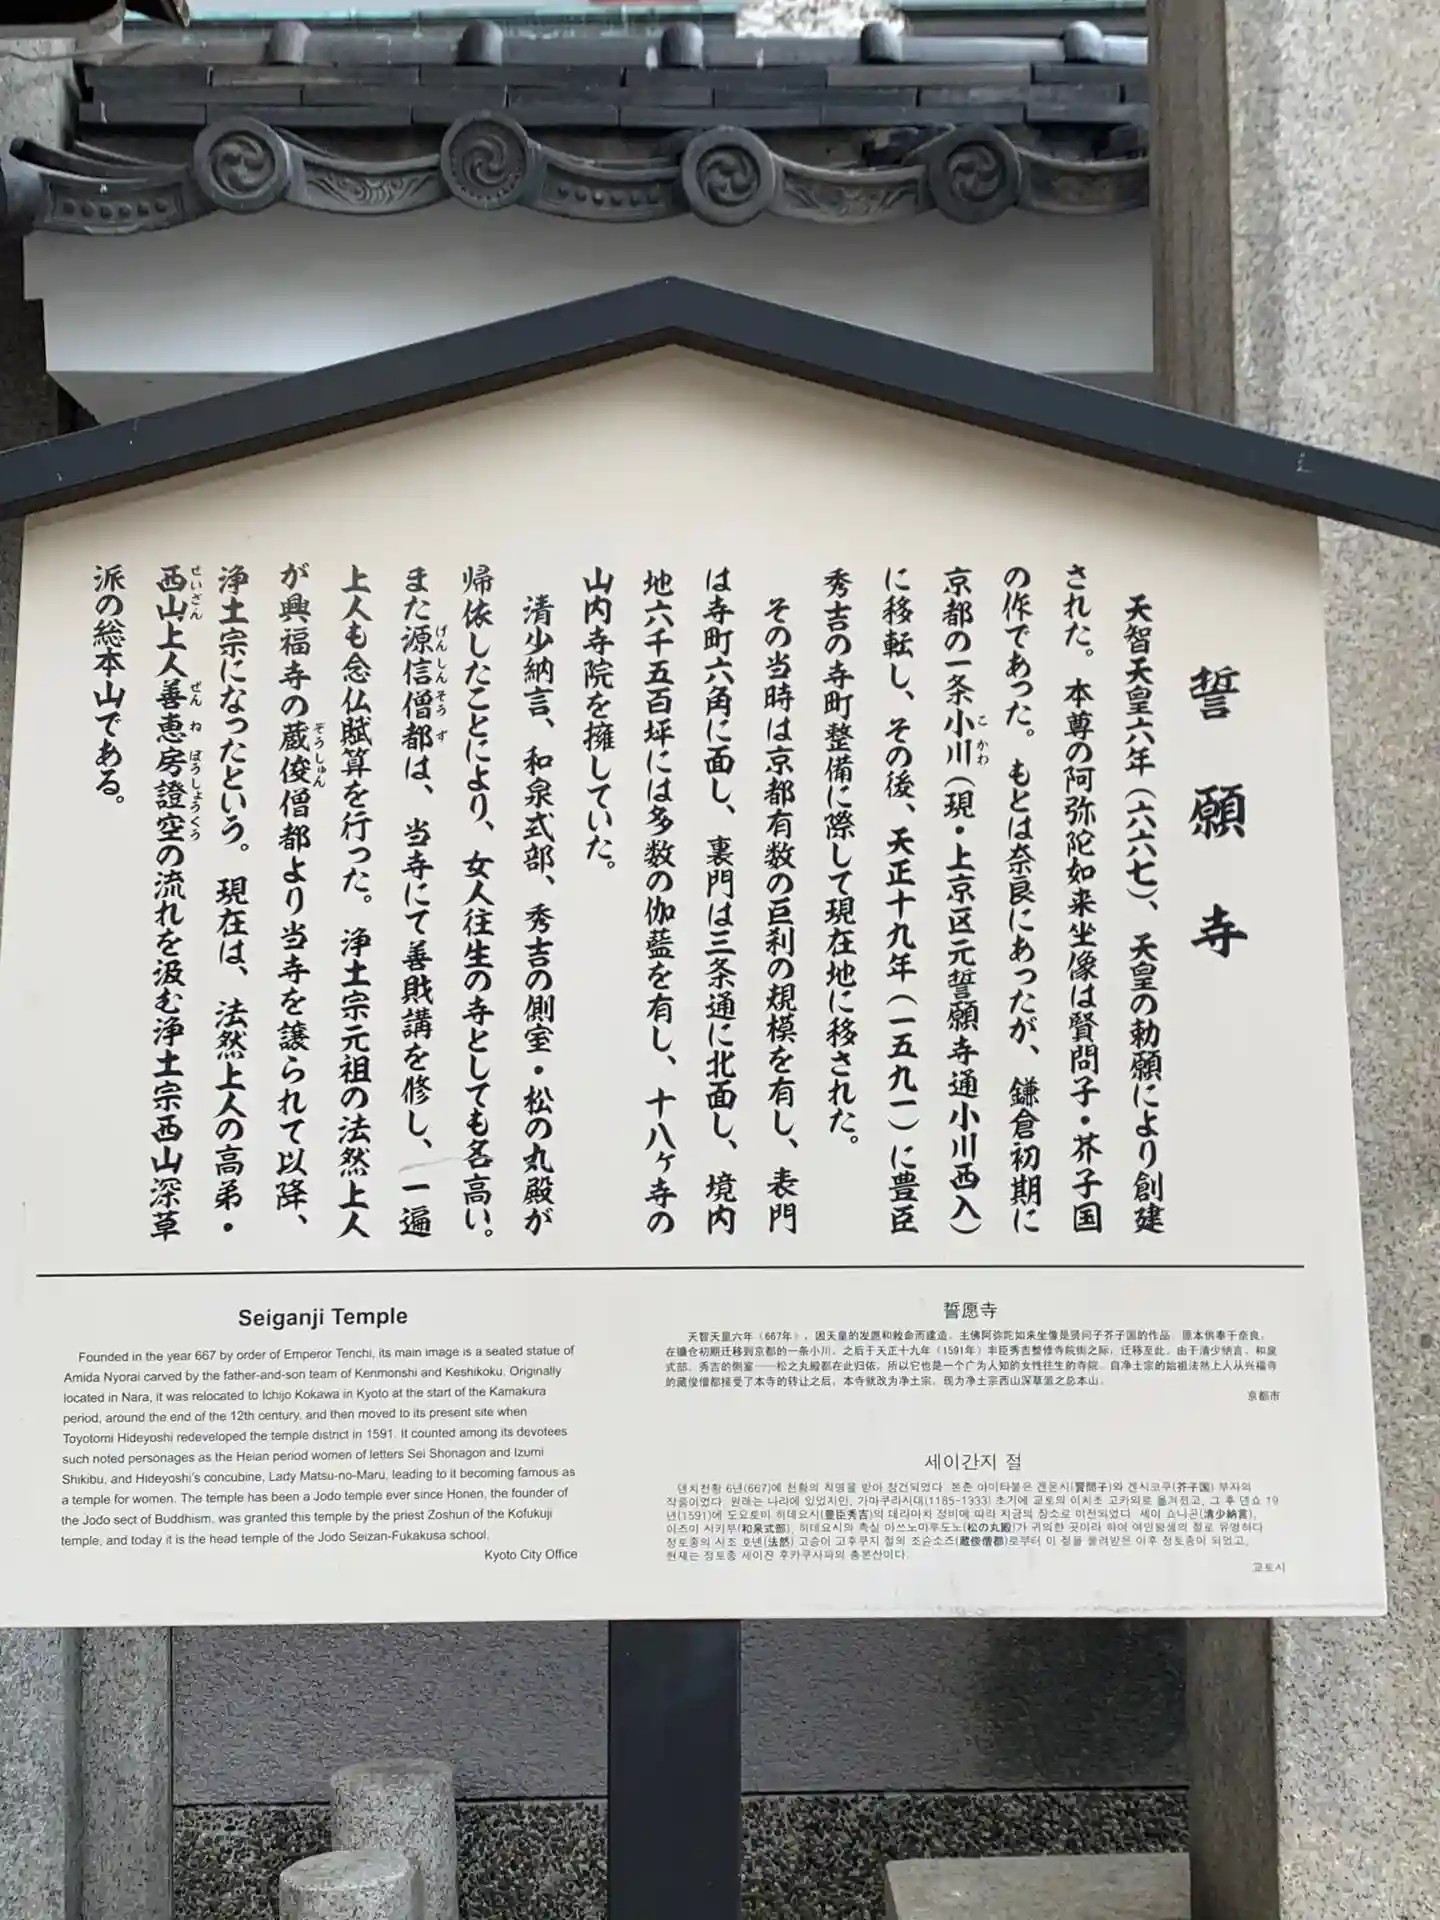 誓願寺
天智天皇六年（六六七）、天皇の勅願により創建
された。本尊の阿弥陀如来坐像は賢問子・芥子国
の作であった。もとは奈良にあったが、鎌倉初期に
京都の一条小川（現・上京区元誓願寺通小川西入）
に移転し、その後、天正十九年（一五九一）に豊臣
秀吉の寺町整備に際して現在地に移された。
その当時は京都有数の巨刹の規模を有し、表門
は寺町六角に面し、裏門は三条通に北面し、境内
地六千五百坪には多数の伽藍を有し、十八ヶ寺の
山内寺院を擁していた。
清少納言、和泉式部、秀吉の側室・松の丸殿が
帰依したことにより、女人往生の寺としても名高い。
また源信僧都は、当寺にて善財講を修し、一遍
上人も念仏賦算を行った。浄土宗元祖の法然上人
が興福寺の蔵俊僧都より当寺を譲られて以降、
浄土宗になったという。現在は、法然上人の高弟・
西山上人善恵房證空の流れを汲む浄土宗西山深草
派の総本山である。
Seiganji Temple
Founded in the year 667 by order of Emperor Tenchi, its main image is a seated statue of
Amida Nyorai carved by the father-and-son team of Kenmonshi and Keshikoku. Originally
located in Nara, it was relocated to Ichijo Kokawa in Kyoto at the start of the Kamakura
period, around the end of the 12th century, and then moved to its present site when
Toyotomi Hideyoshi redeveloped the temple district in 1591. It counted among its devotees
such noted personages as the Heian period women of letters Sei Shonagon and Izumi
Shikibu, and Hideyoshi's concubine, Lady Matsu-no-Maru, leading to it becoming famous as
a temple for women. The temple has been a Jodo temple ever since Honen, the founder of
the Jodo sect of Buddhism, was granted this temple by the priest Zoshun of the Kofukuji
temple, and today it is the head temple of the Jodo Seizan-Fukakusa school.
Kyoto City Office
誓愿寺
天智天皇六年（667年），因天皇的发愿和敕命而建造。主佛阿弥陀如来坐像是贤问子芥子国的作品。原本供奉于奈良，
在镰仓初期迁移到京都的一条小川，之后于天正十九年（1591年）丰臣秀吉整修寺院街之际，迁移至此。由于清少纳言、和泉
式部、秀吉的侧室——松之丸殿都在此归依，所以它也是一个广为人知的女性往生的寺院。自净土宗的始祖法然上人从兴福寺
的藏俊僧都接受了本寺的转让之后，本寺就改为净土宗。现为净土宗西山深草派之总本山。
京都市
세이간지 절
덴치천황 6년(667)에 천황의 칙명을 받아 창건되었다. 본존 아미타불은 겐몬시(賢問子)와 게시코쿠(芥子国) 부자의
작품이었다. 원래는 나라에 있었지만, 가마쿠라시대(1185-1333) 초기에 교토의 이치조 고카와로 옮겨졌고, 그 후 덴쇼 19
년(1591)에 도요토미 히데요시(豊臣秀吉)의 데라마치 정비에 따라 지금의 장소로 이전되었다. 세이 쇼나곤(清少納言),
이즈미 시키부(和泉式部), 히데요시의 측실 마쓰노마루도노(松の丸殿)가 귀의한 곳이라 하여 여인왕생의 절로 유명하다.
정토종의 시조 호넨(法然) 고승이 고후쿠지 절의 조슌소즈(蔵俊僧都)로부터 이 절을 물려받은 이후 정토종이 되었고,
현재는 정토종 세이잔 후카쿠사파의 총본산이다.
교토시